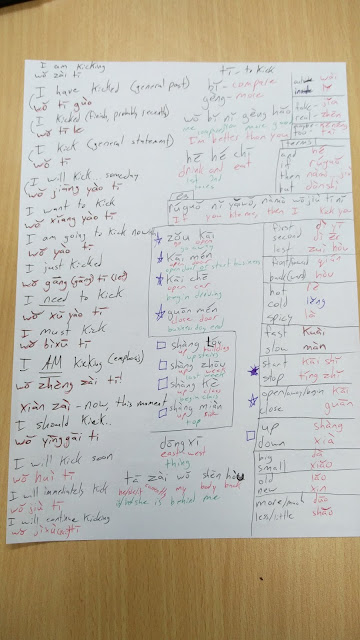 I am kicking
wǒ zài tī
I have kicked (general past)
(wǒ tī guò
I kicked (finish, probably recently)
(wǒ tī le
I kick (general statement)
(wǒ tī
I will kick, someday
(wǒ jiāng yào tī
I want to kick
wǒ xiǎng yào tī
I am going to kick now
wǒ yào tī
I just kicked
wǒ gāng (gāng) tī (le)
I need to kick
wǒ xū yào tī
I must kick
wǒ bìxū tī
I AM kicking (emphasis)
wǒ zhèng zài tī!
xiàn zài - now, this moment
I should kick.
wǒ yīnggāi tī
I will kick soon
wǒ huì tī
I will immediately kick
wǒ jiù tī
I will continue kicking
wǒ jìxù tī
tī - to kick
bǐ - compare
gèng - more
wǒ bǐ nǐ gèng hǎo
me comparison you more good
I'm better than you
hē hē chī
drink and eat
rúguǒ nǐ , nàme wǒ jiù tī nǐ
If you me, then I kick you
zǒu kāi
go open
kāi mén
open door
open door or start business
kāi chē
open car
begin driving
guān mén
close door
business day end
shàng lóu
up building
upstairs
shàng zhōu
up week
shàng kè
up class
shàng miàn
up
top
dōng xī
east west
thing
tā zài wǒ shēn hòu
he/she/it my body back
he/she is behind me
wài
lǐ
take
real - zhēn
terms
and hé
if rúguǒ
then nàme, jiù
but dànshì
first dì yī
second dì èr
last zuì hòu
front/forward qián
back(ward) hòu
hot rè
cold lěng
spicy là
fast kuài
slow màn
start kāi shǐ
stop tíng zhǐ
open/turn on/begin kāi
close guān
up shàng
down xià
big dà
small xiǎo
old lǎo
new xīn
more/much duō
less/little shǎo